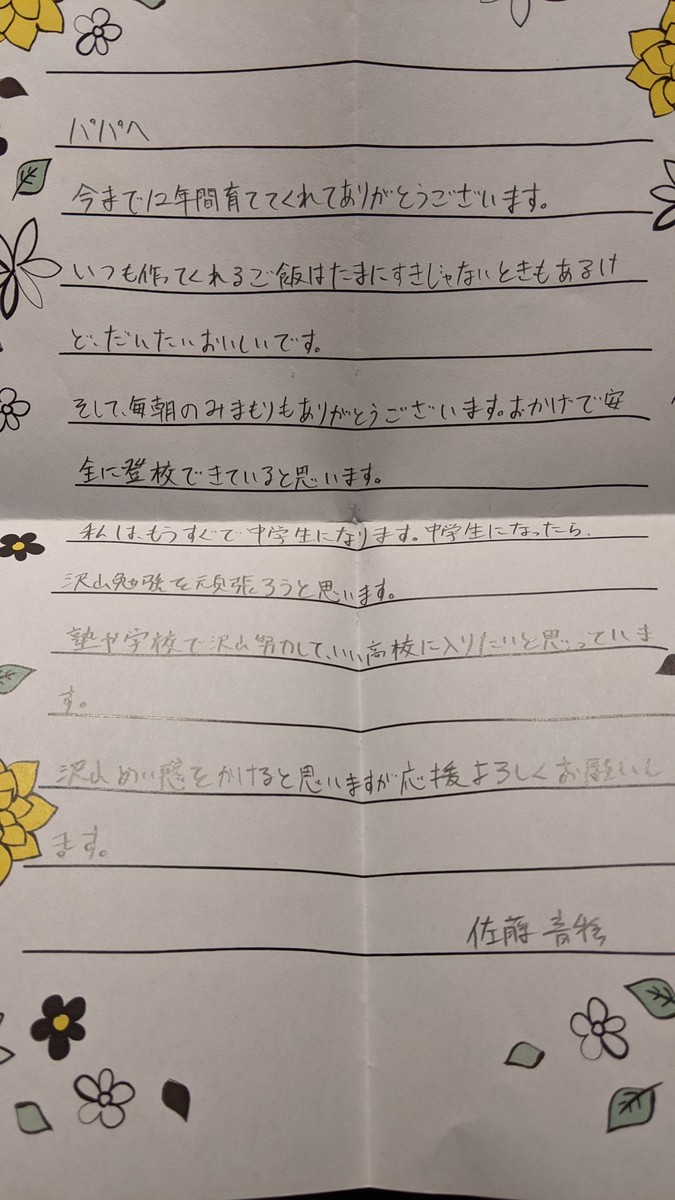 パパへ
今まで12年間育ててくれてありがとうございます。
いつも作ってくれるご飯はたまにすきじゃないときもあるけ
ど、だいたいおいしいです。
そして、毎朝のみまもりもありがとうございます。おかげで安
全に登校できていると思います。
私は、もうすぐで中学生になります。中学生になったら、
沢山勉強を頑張ろうと思います。
塾や学校で沢山努力して、いい高校に入りたいと思っていま
す。
沢山めい惑をかけると思いますが応援よろしくお願いし
ます。
佐藤